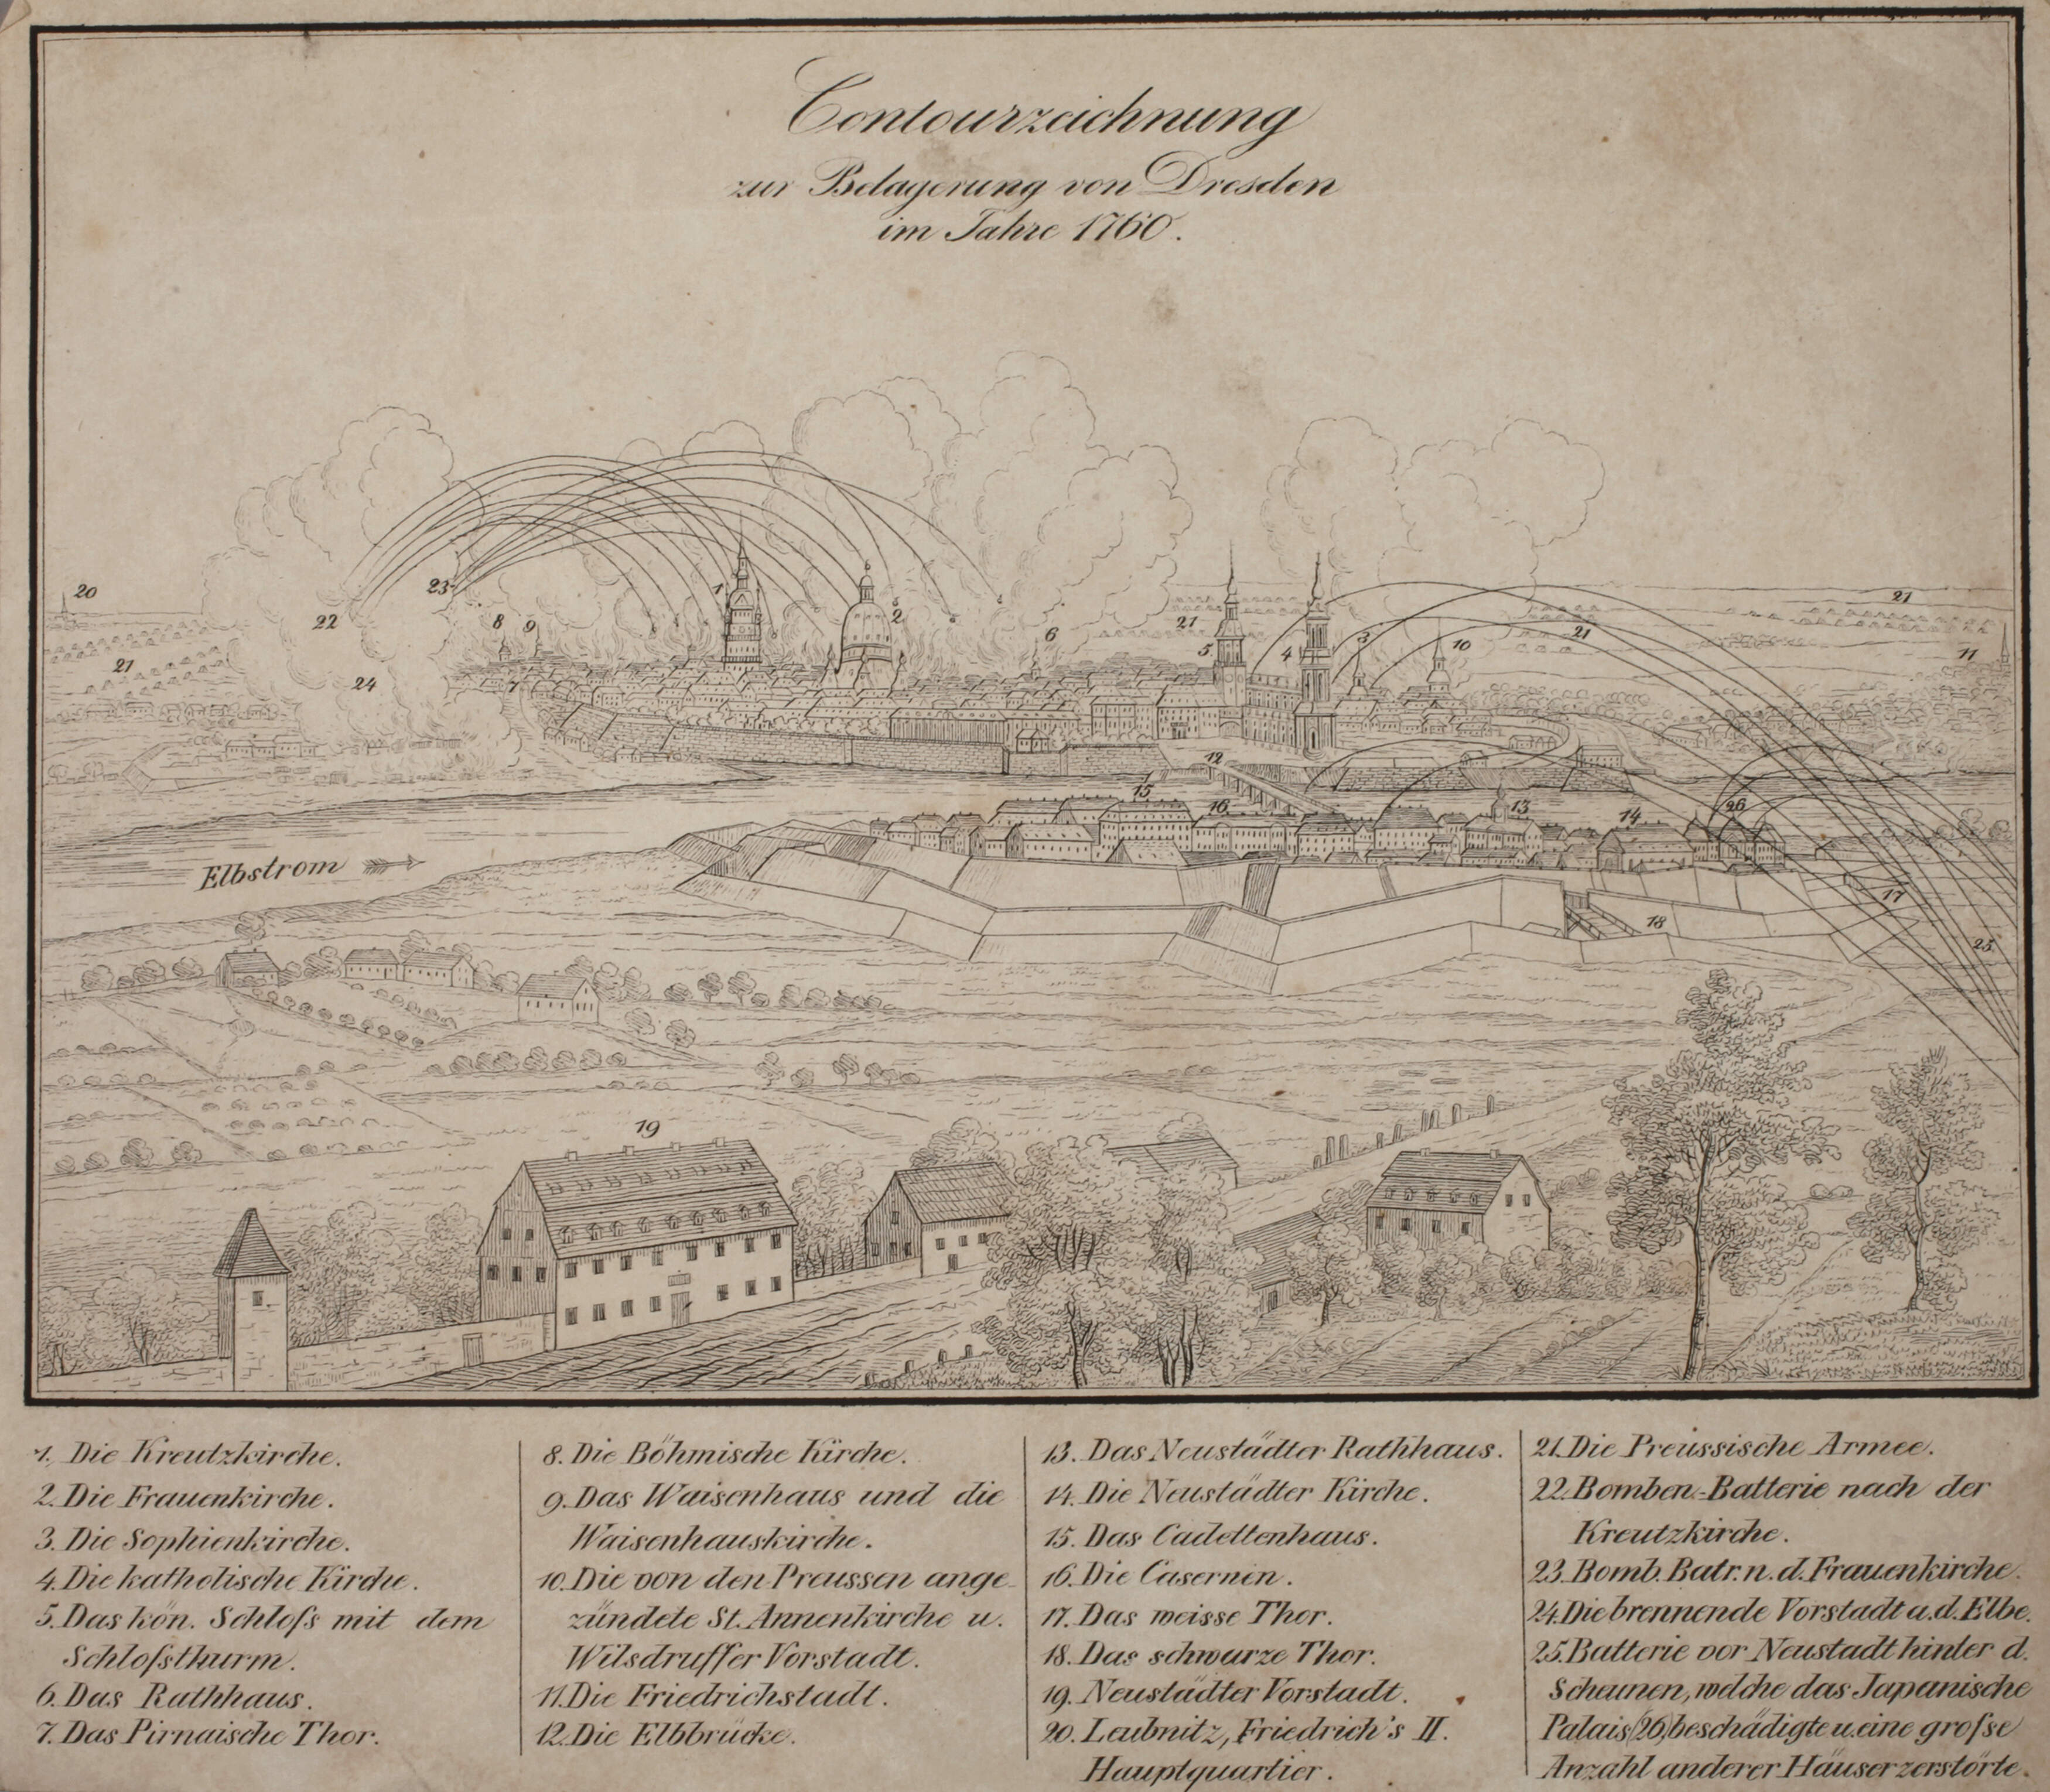 Contourzeichnung
zur Belagerung von Dresden
im Jahre 1760.
20
23
22
8
9
1
2
6
21
5
4
3
21
10
21
11
21
24
7
12
15
16
13
14
26
Elbstrom
17
18
25
19
1. Die Kreutzkirche.
2. Die Frauenkirche.
3. Die Sophienkirche.
4. Die katholische Kirche.
5. Das kön. Schloſs mit dem
Schloſsthurm.
6. Das Rathhaus.
7. Das Pirnaische Thor.
8. Die Böhmische Kirche.
9. Das Waisenhaus und die
Waisenhauskirche.
10. Die von den Preussen ange-
zündete St. Annenkirche u.
Wilsdruffer Vorstadt.
11. Die Friedrichstadt.
12. Die Elbbrücke.
13. Das Neustädter Rathhaus.
14. Die Neustädter Kirche.
15. Das Cadettenhaus.
16. Die Casernen.
17. Das weisse Thor.
18. Das schwarze Thor.
19. Neustädter Vorstadt.
20. Leubnitz, Friedrich's II.
Hauptquartier.
21. Die Preussische Armee.
22. Bomben-Batterie nach der
Kreutzkirche.
23. Bomb. Batr. n. d. Frauenkirche.
24. Die brennende Vorstadt a. d. Elbe.
25. Batterie vor Neustadt hinter d.
Scheunen, welche das Japanische
Palais (26) beschädigte u. eine groſse
Anzahl anderer Häuser zerstörte.